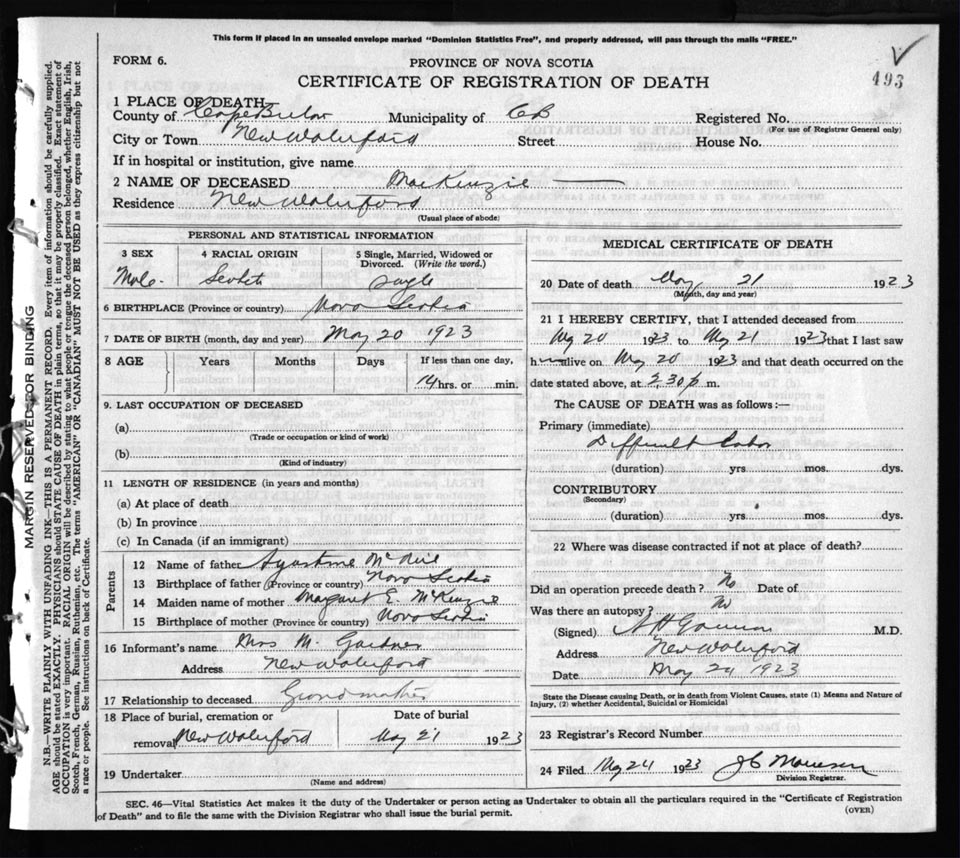 This form if placed in an unsealed envelope marked "Dominion Statistics Free", and properly addressed, will pass through the mails "FREE."
FORM 6.
PROVINCE OF NOVA SCOTIA
493
CERTIFICATE OF REGISTRATION OF DEATH
1 PLACE OF DEATH
County of Cape Breton Municipality of CB Registered No.
(For use of Registrar General only)
City or Town New Waterford Street House No.
If in hospital or institution, give name
2 NAME OF DECEASED MacKenzie
Residence New Waterford
(Usual place of abode)
PERSONAL AND STATISTICAL INFORMATION
3 SEX 4 RACIAL ORIGIN 5 Single, Married, Widowed or Divorced. (Write the word.)
Male Scotch Single
6 BIRTHPLACE (Province or country) Nova Scotia
7 DATE OF BIRTH (month, day and year) May 20 1923
8 AGE Years Months Days If less than one day,
14 hrs. or min.
9. LAST OCCUPATION OF DECEASED
(a)
(Trade or occupation or kind of work)
(b)
(Kind of industry)
11 LENGTH OF RESIDENCE (in years and months)
(a) At place of death
(b) In province
(c) In Canada (if an immigrant)
Parents
12 Name of father McNeil
13 Birthplace of father (Province or country) Nova Scotia
14 Maiden name of mother Margaret E. McKenzie
15 Birthplace of mother (Province or country) Nova Scotia
16 Informant's name Mrs M.
Address New Waterford
17 Relationship to deceased Grandmother
18 Place of burial, cremation or removal New Waterford
Date of burial
May 21 1923
19 Undertaker
(Name and address)
MEDICAL CERTIFICATE OF DEATH
20 Date of death May 21 1923
(Month, day and year)
21 I HEREBY CERTIFY, that I attended deceased from
May 20 1923 to May 21 1923 that I last saw
h alive on May 20 1923 and that death occurred on
date stated above, at 2 30 p m.
The CAUSE OF DEATH was as follows :—
Primary (immediate)
Difficult Labor
(duration) yrs. mos. dys.
CONTRIBUTORY
(Secondary)
(duration) yrs. mos. dys.
22 Where was disease contracted if not at place of death?
Did an operation precede death? No Date of
Was there an autopsy? No
(Signed) M.D.
Address New Waterford
Date May 24 1923
State the Disease causing Death, or in death from Violent Causes, state (1) Means and Nature of
Injury, (2) whether Accidental, Suicidal or Homicidal
23 Registrar's Record Number
24 Filed May 24 1923
Division Registrar.
SEC. 46—Vital Statistics Act makes it the duty of the Undertaker or person acting as Undertaker to obtain all the particulars required in the "Certificate of Registration
of Death" and to file the same with the Division Registrar who shall issue the burial permit.
(OVER)
MARGIN RESERVED FOR BINDING
N.B.—WRITE PLAINLY WITH UNFADING INK—THIS IS A PERMANENT RECORD. Every item of information should be carefully supplied.
AGE should be stated EXACTLY. PHYSICIANS should STATE CAUSE OF DEATH in plain terms, so that it may be properly classified. Exact statement of
OCCUPATION is very important. RACIAL ORIGIN will be described by stating to what people or tongue the deceased person belonged, whether English, Irish,
Scotch, French, German, Russian, Ruthenian, etc. The terms "AMERICAN" OR "CANADIAN" MUST NOT BE USED as they express citizenship but not
a race or people. See instructions on back of Certificate.